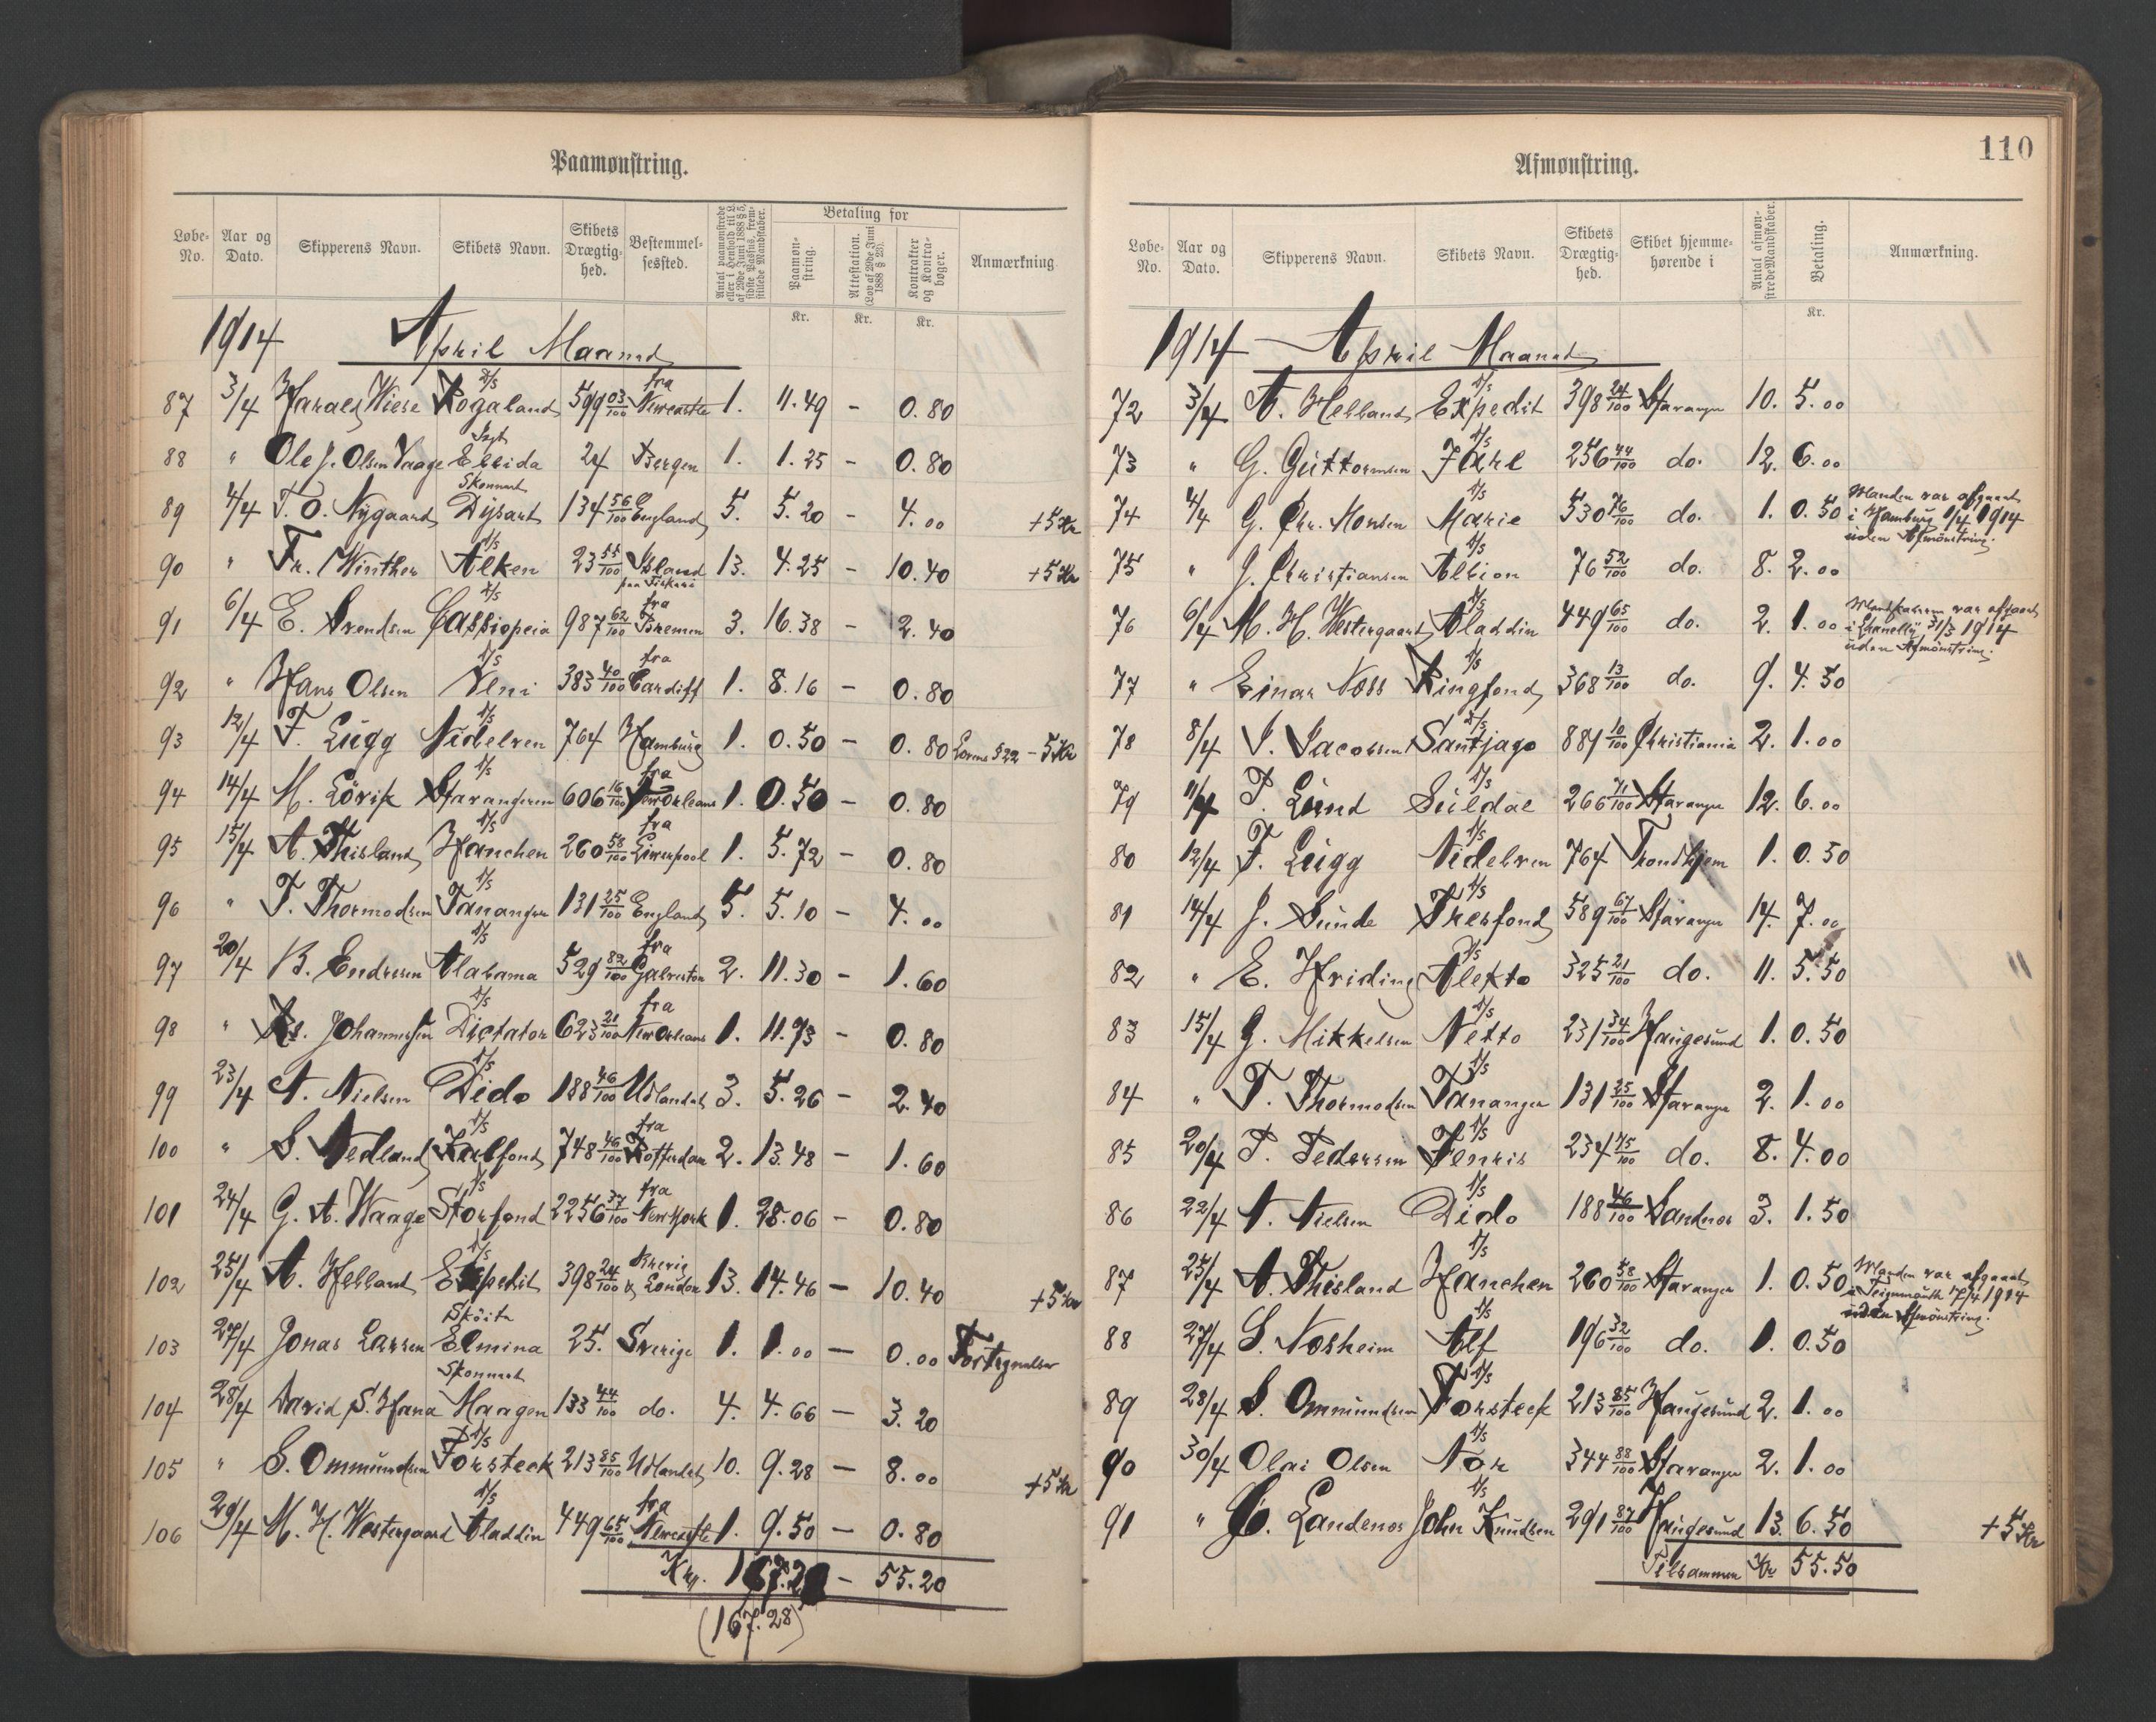 Paamønstring.
Løbe-No. Aar og Dato. Skipperens Navn. Skibets Navn. Skibets Drægtig-hed. Bestemmel-sessted. Antal paamønstrede eller i Henhold til L. af 29de Juni 1888 § 5, sidste Passus, frem-stillede Mandskaber. Betaling for Paamøn-string. Attestation. (Lov af 29de Juni 1888 § 23). Kontrakter og Kontra-bøger. Anmærkning.
Kr. Kr. Kr.
1914 April Maaned
87 3/4 Harald Wiese D/S Rogaland 599 03/100 fra Newcastle 1. 11.49 – 0.80
88 " Ole J. Olsen Vaage Jagt Ellida 24 Bergen 1. 1.25 – 0.80
89 4/4 T. O. Nygaard Skonnert Dysart 134 56/100 England 5. 5.20 – 4.00 +5Kr
90 " Fr. Winther D/S Alken 23 55/100 Island paa Fiskeri 13. 4.25 – 10.40 +5Kr
91 6/4 E. Svendsen D/S Cassiopeia 987 62/100 fra Bremen 3. 16.38 – 2.40
92 " Hans Olsen D/S Veni 383 40/100 fra Cardiff 1. 8.16 – 0.80
93 12/4 F. Lugg D/S Nidelven 764 Hamburg 1. 0.50 – 0.80 § 22 – 5Kr
94 14/4 M. Lövik D/S Stavangeren 606 16/100 fra New Orleans 1. 0.50 – 0.80
95 15/4 A. Thisland D/S Hanchen 260 58/100 fra Liverpool 1. 5.72 – 0.80
96 " T. Thormodsen D/S Tananger 131 25/100 England 5. 5.10 – 4.00
97 20/4 B. Endresen D/S Alabama 529 82/100 fra Galveston 2. 11.30 – 1.60
98 " Johannessen D/S Dictator 623 21/100 fra New Orleans 1. 11.73 – 0.80
99 23/4 A. Nielsen D/S Dido 188 46/100 Udlandet 3. 5.26 – 2.40
100 " S. Nedland D/S Kalfond 748 46/100 fra Rotterdam 2. 13.48 – 1.60
101 24/4 G. A. Waage D/S Storfond 2256 37/100 fra New York 1. 28.06 – 0.80
102 25/4 A. Helland D/S Expedit 398 24/100 Sverig & London 13. 14.46 – 10.40 +5Kr
103 27/4 Jonas Larsen Sköite Elmina 25. Sverige 1. 1.00 – 0.00 Fortegnelse
104 28/4 David S. Hana Skonnert Haagen 133 44/100 do. 4. 4.66 – 3.20
105 " S. Ommundsen D/S Torsteck 213 85/100 Udlandet 10. 9.28 – 8.00 +5Kr
106 29/4 M. H. Westergaard D/S Aladdin 449 65/100 fra Newcastle 1. 9.50 – 0.80
Kr. 167.28 – 55.20
(167.28)
110
Afmønstring.
Løbe-No. Aar og Dato. Skipperens Navn. Skibets Navn. Skibets Drægtig-hed. Skibet hjemme-hørende i Antal afmøn-strede Mandskaber. Betaling. Anmærkning.
Kr.
1914 April Maaned
72 3/4 A. Helland D/S Expedit 398 24/100 Stavanger 10. 5.00
73 " G. Guttormsen D/S Jarl 256 44/100 do. 12. 6.00
74 4/4 G. Chr. Monsen D/S Marie 530 76/100 do. 1. 0.50 Manden var afgaaet
i Hamburg 1/4 1914
uden Afmönstring.
75 " J. Christiansen D/S Albion 76 52/100 do. 8. 2.00
76 6/4 M. H. Westergaard D/S Aladdin 449 65/100 do. 2. 1.00 Mandskaberne var afgaaet
i Llanelly 31/3 1914
uden Afmönstring.
77 " Einar Voss D/S Ringfond 368 13/100 do. 9. 4.50
78 8/4 J. Jacobsen D/S Santjago 881 10/100 Christiania 2. 1.00
79 11/4 P. Lund D/S Suldal 266 71/100 Stavanger 12. 6.00
80 12/4 F. Lugg D/S Nidelven 764 Trondhjem 1. 0.50
81 14/4 J. Sunde D/S Thesfond 589 67/100 Stavanger 14. 7.00
82 " E. Hviding D/S Alekto 325 21/100 do. 11. 5.50
83 15/4 G. Mikkelsen D/S Netto 231 34/100 Haugesund 1. 0.50
84 " T. Thormodsen D/S Tananger 131 25/100 Stavanger 2. 1.00
85 20/4 P. Pedersen D/S Fenris 234 75/100 do. 8. 4.00
86 22/4 A. Nielsen D/S Dido 188 46/100 Sandnes 3. 1.50
87 25/4 A. Thisland D/S Hanchen 260 58/100 Stavanger 1. 0.50 Manden var afgaaet
i Teignmouth 17/4 1914
uden Afmönstring.
88 27/4 S. Nosheim D/S Alf 196 32/100 do. 1. 0.50
89 28/4 S. Ommundsen D/S Torsteck 213 85/100 Haugesund 2. 1.00
90 30/4 Olai Olsen D/S Nor 344 88/100 Stavanger 2. 1.00
91 " Landenes D/S John Knudsen 291 87/100 Haugesund 13. 6.50 +5Kr
Tilsammen Kr 55.50